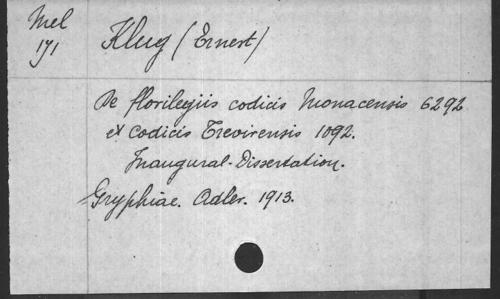 Mel
171
Klug (Ernest)
De florilegiis codicis Monacensis 6292
et codicis Trevirensis 1092.
Inaugural-Dissertation.
Gryphiae. Adler. 1913.